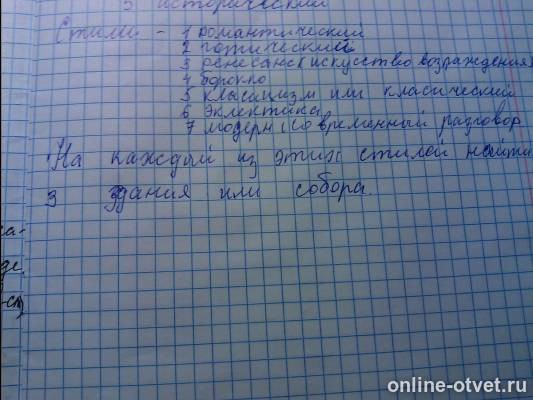 3 исторический
Стили - 1 романтический
2 готический
3 ренесанс (искусство возраждения)
4 борокко
5 класицизм или класический
6 эклектика
7 модерн (современный разговор
На каждый из этих стилой найти
3 здания или собора.
са-
де
online-otvet.ru